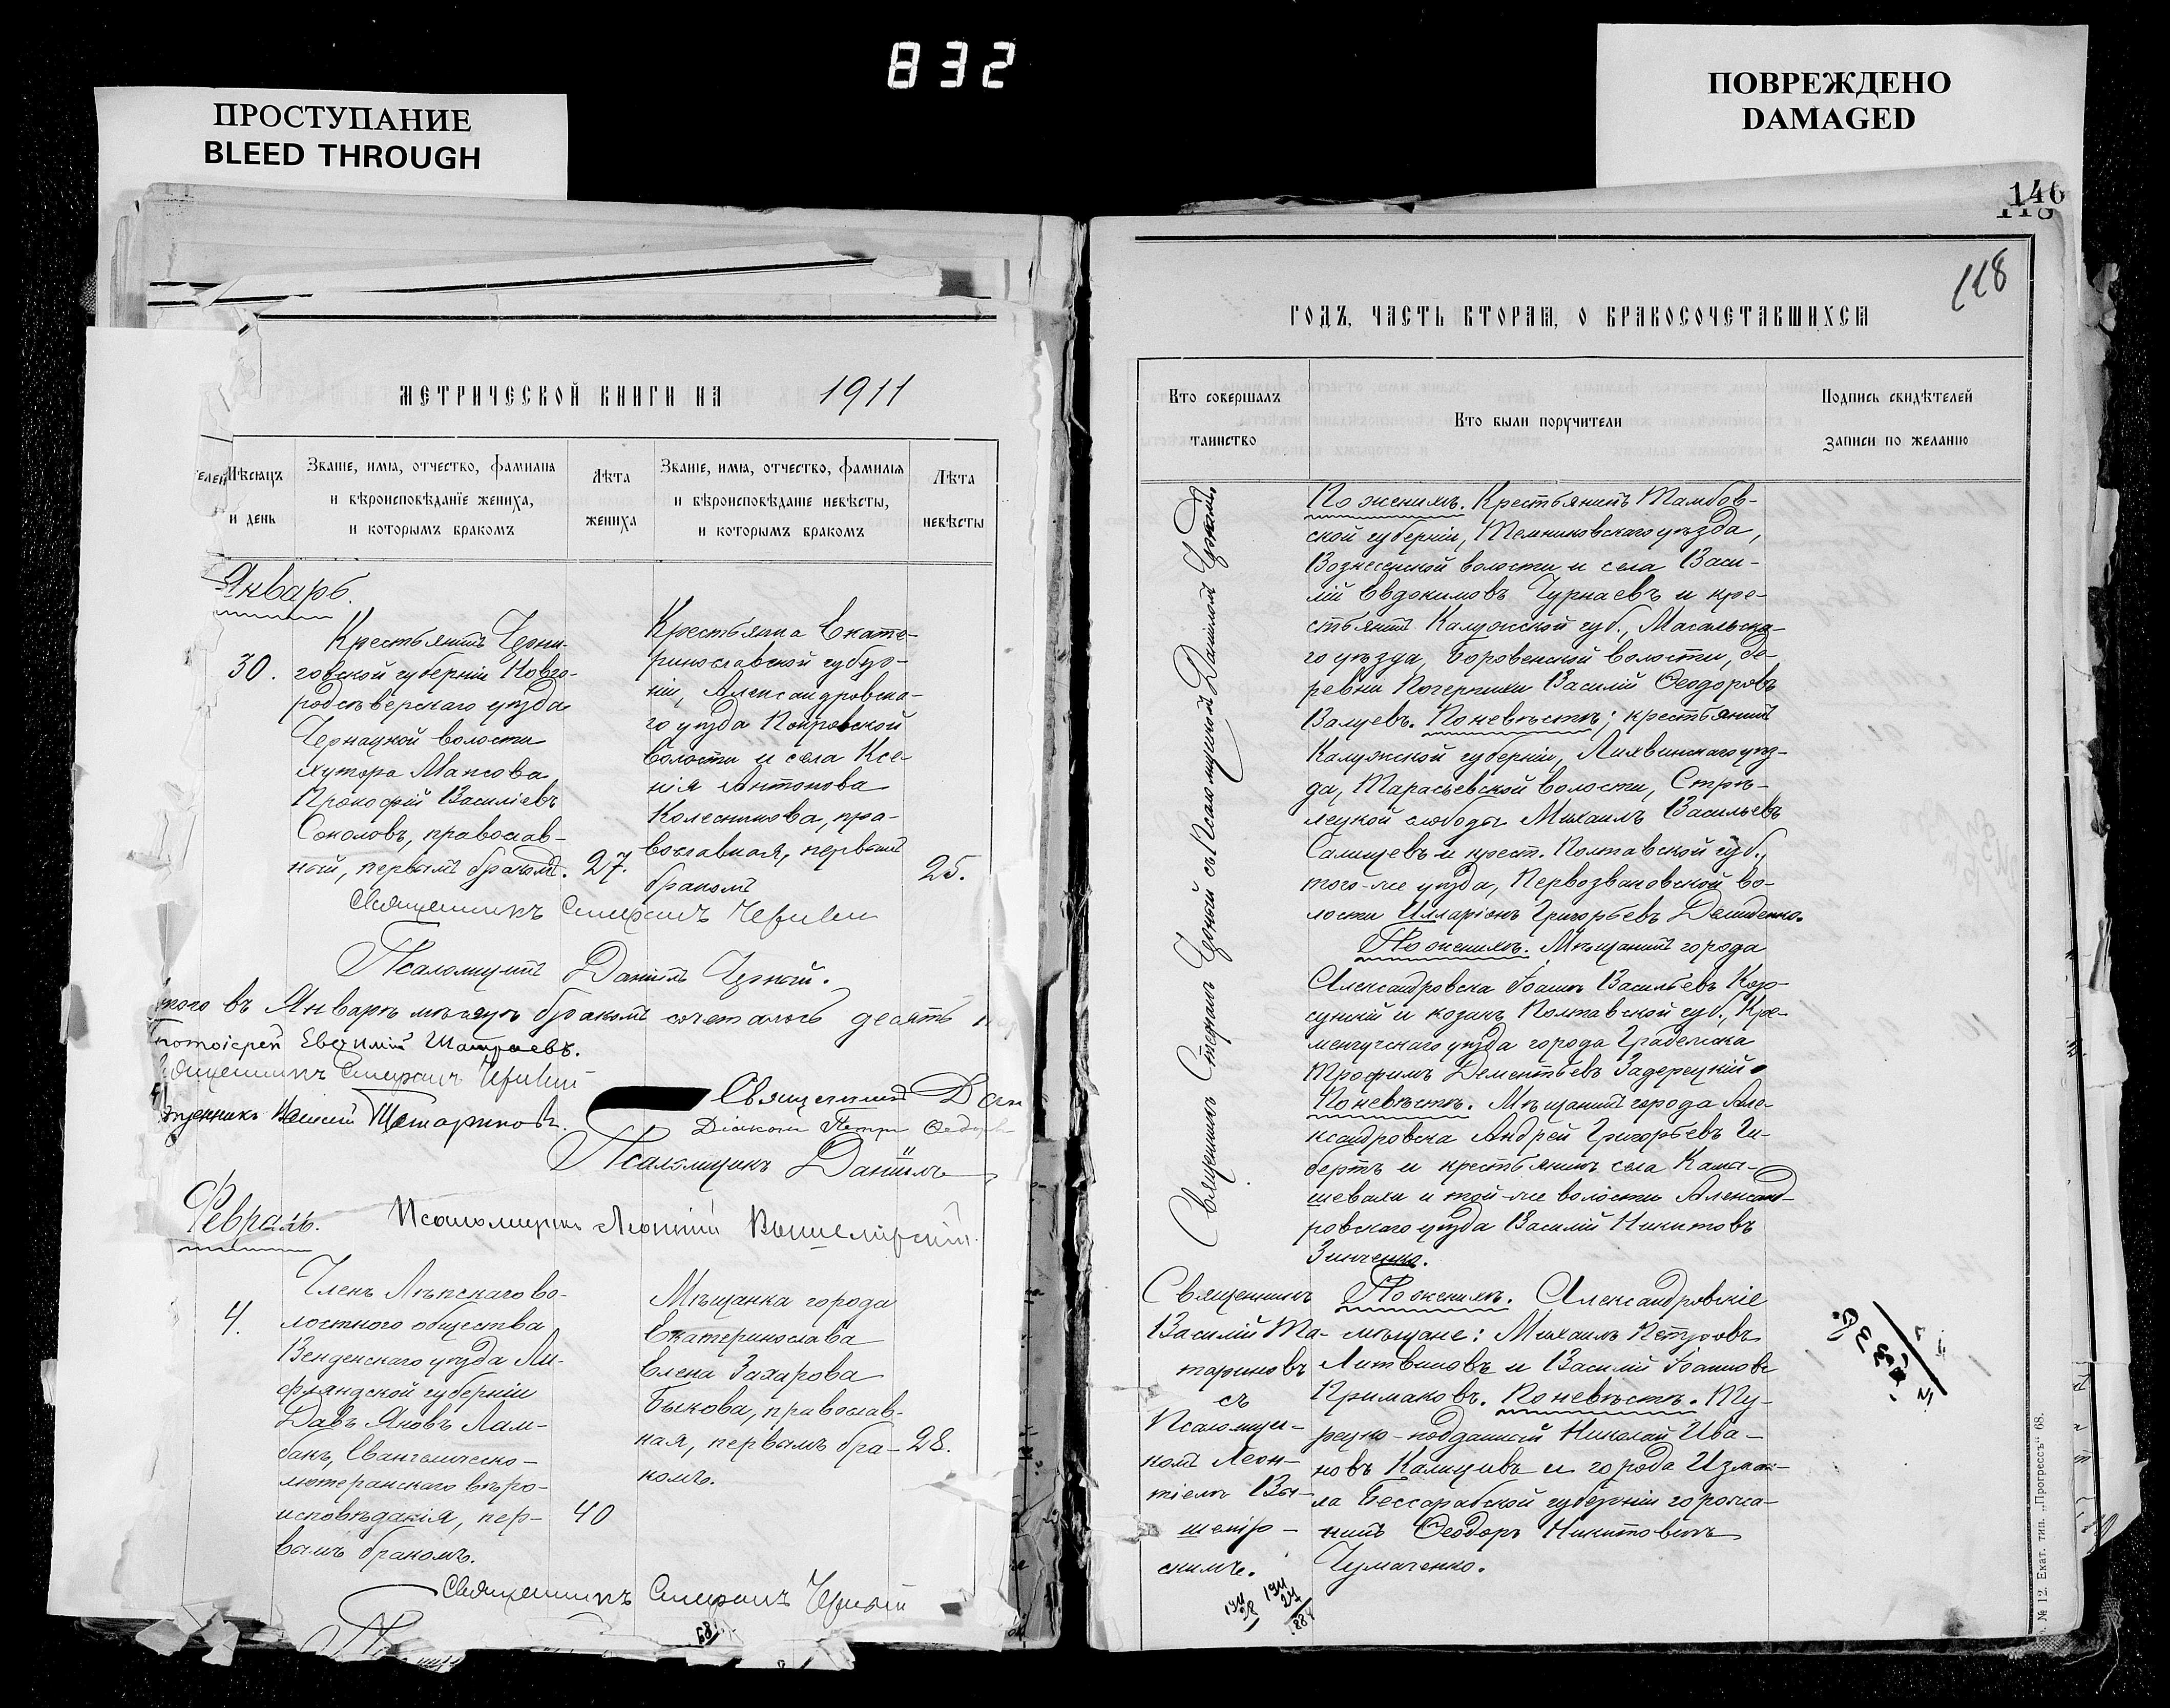 832
ПРОСТУПАНИЕ
BLEED THROUGH
ПОВРЕЖДЕНО
DAMAGED
МЕТРИЧЕСКОЙ КНИГИ НА 1911
Мѣсяцъ
и день
Званіе, имя, отчество, фамилія
и вѣроисповѣданіе жениха,
и которымъ бракомъ
Лѣта
жениха
Званіе, имя, отчество, фамилія
и вѣроисповѣданіе невѣсты,
и которымъ бракомъ
Лѣта
невѣсты
Январь.
30.
Крестьянинъ Черни-
говской губерніи Новго-
родсѣверскаго уѣзда
Чернацкой волости
хутора Мансова
Прокофій Василіевъ
Соколовъ, православ-
ный, первымъ бракомъ.
27.
Крестьянка Екате-
ринославской губер-
ніи, Александровска-
го уѣзда Покровской
волости и села Ксе-
нія Антонова
Колесникова, пра-
вославная, первымъ
бракомъ
25.
Священникъ Стефанъ Черный
Псаломщикъ Даніилъ Черный.
въ Январѣ мѣсяцѣ бракомъ сочеталось десять
Протоіерей Евфимій
Священникъ Стефанъ Черный
Священникъ
Діаконъ Петръ
Псаломщикъ Даніилъ
Февраль.
Псаломщикъ Леонтій Вышемірскій.
4.
Членъ Лѣпскаго во-
лостного общества
Венденскаго уѣзда Ли-
фляндской губерніи
Давъ Яновъ Лам-
бакъ, Евангелическо-
лютеранскаго вѣро-
исповѣданія, пер-
вымъ бракомъ.
40
Мѣщанка города
Екатеринослава
Елена Захарова
Быкова, православ-
ная, первымъ бра-
комъ.
28.
Священникъ Стефанъ Черный
146
118
ГОДЪ, ЧАСТЬ ВТОРАЯ, О БРАКОСОЧЕТАВШИХСЯ
Кто совершалъ
таинство
Кто были поручители
Подпись свидѣтелей
записи по желанію
Священникъ Стефанъ Черный съ Псаломщикомъ Даніиломъ Чернымъ
По женихѣ. Крестьянинъ Тамбов-
ской губерніи, Темниковскаго уѣзда,
Вознесенской волости и села Васи-
лій Евдокимовъ Чурнаевъ и кре-
стьянинъ Калужской губ., Масальска-
го уѣзда, Боровенской волости, де-
ревни Почернихи Василій Ѳеодоровъ
Валуевъ. По невѣстѣ; крестьянинъ
Калужской губерніи, Лихвинскаго уѣз-
да, Тарасьевской волости, Стрѣ-
лецкой слободы Михаилъ Васильевъ
Салищевъ и крест. Полтавской губ.,
того-же уѣзда, Первозвановской во-
лости Илларіонъ Григорьевъ Демиденко.
По женихѣ. Мѣщанинъ города
Александровска Іоаннъ Васильевъ Кор-
сунскій и козакъ Полтавской губ., Кре-
менчугскаго уѣзда города Градижска
Трофимъ Дементьевъ Задерецкій.
По невѣстѣ. Мѣщанинъ города Але-
ксандровска Андрей Григорьевъ Ги-
бертъ и крестьянинъ села Кама-
шевахи и той-же волости Александ-
ровскаго уѣзда Василій Никитовъ
Зинченко.
Священникъ
Василій Та-
тариновъ
съ
Псаломщи-
комъ Леон-
тіемъ Вы-
шемір-
скимъ.
По женихѣ. Александровскіе
мѣщане: Михаилъ Петровъ
Литвиновъ и Василій Іоанновъ
Примаковъ. По невѣстѣ. Ту-
рецко-подданный Николай Ива-
новъ Калицивъ и города Измаи-
ла Бессарабской губерніи горожа-
нинъ Ѳеодоръ Никитовичъ
Чумаченко.
№ 12. Екат. тип. „Прогрессъ" 68.